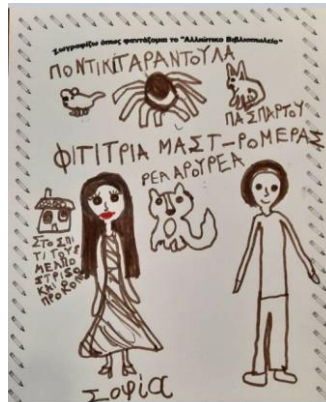 Ζωγραφίζω όπως φαντάζομαι το "Αλλιώτικο Βιβλιοπωλείο"
ΠΟΝΤΙΚΙΤΑΡΑΝΤΟΥΛΑ
ΠΑΣΠΑΡΤΟΥ
ΦΙΤΙΤΡΙΑ ΜΑΣΤ-ΡΟΜΕΡΑΣ
ΡΕΑΑΡΟΥΡΕΑ
ΣΤΟ ΣΠΙ
ΤΙ ΤΟΥΣ
ΜΕΛΠΟ
Σοφία